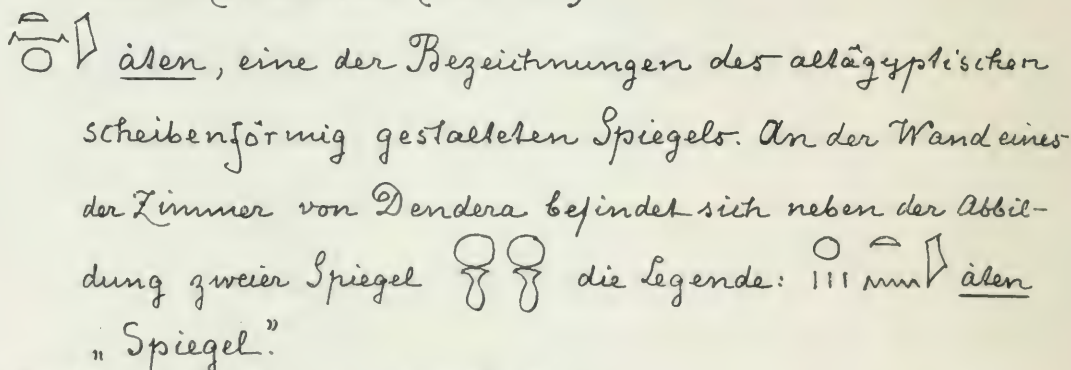 𓏏𓈖𓇳𓇋 àten, eine der Bezeichnungen des altägyptischen
scheibenförmig gestalteten Spiegels. An der Wand eines
der Zimmer von Dendera befindet sich neben der Abbil-
dung zweier Spiegel die Legende: 𓇳𓏥𓏏𓈖𓇋 àten
„Spiegel."